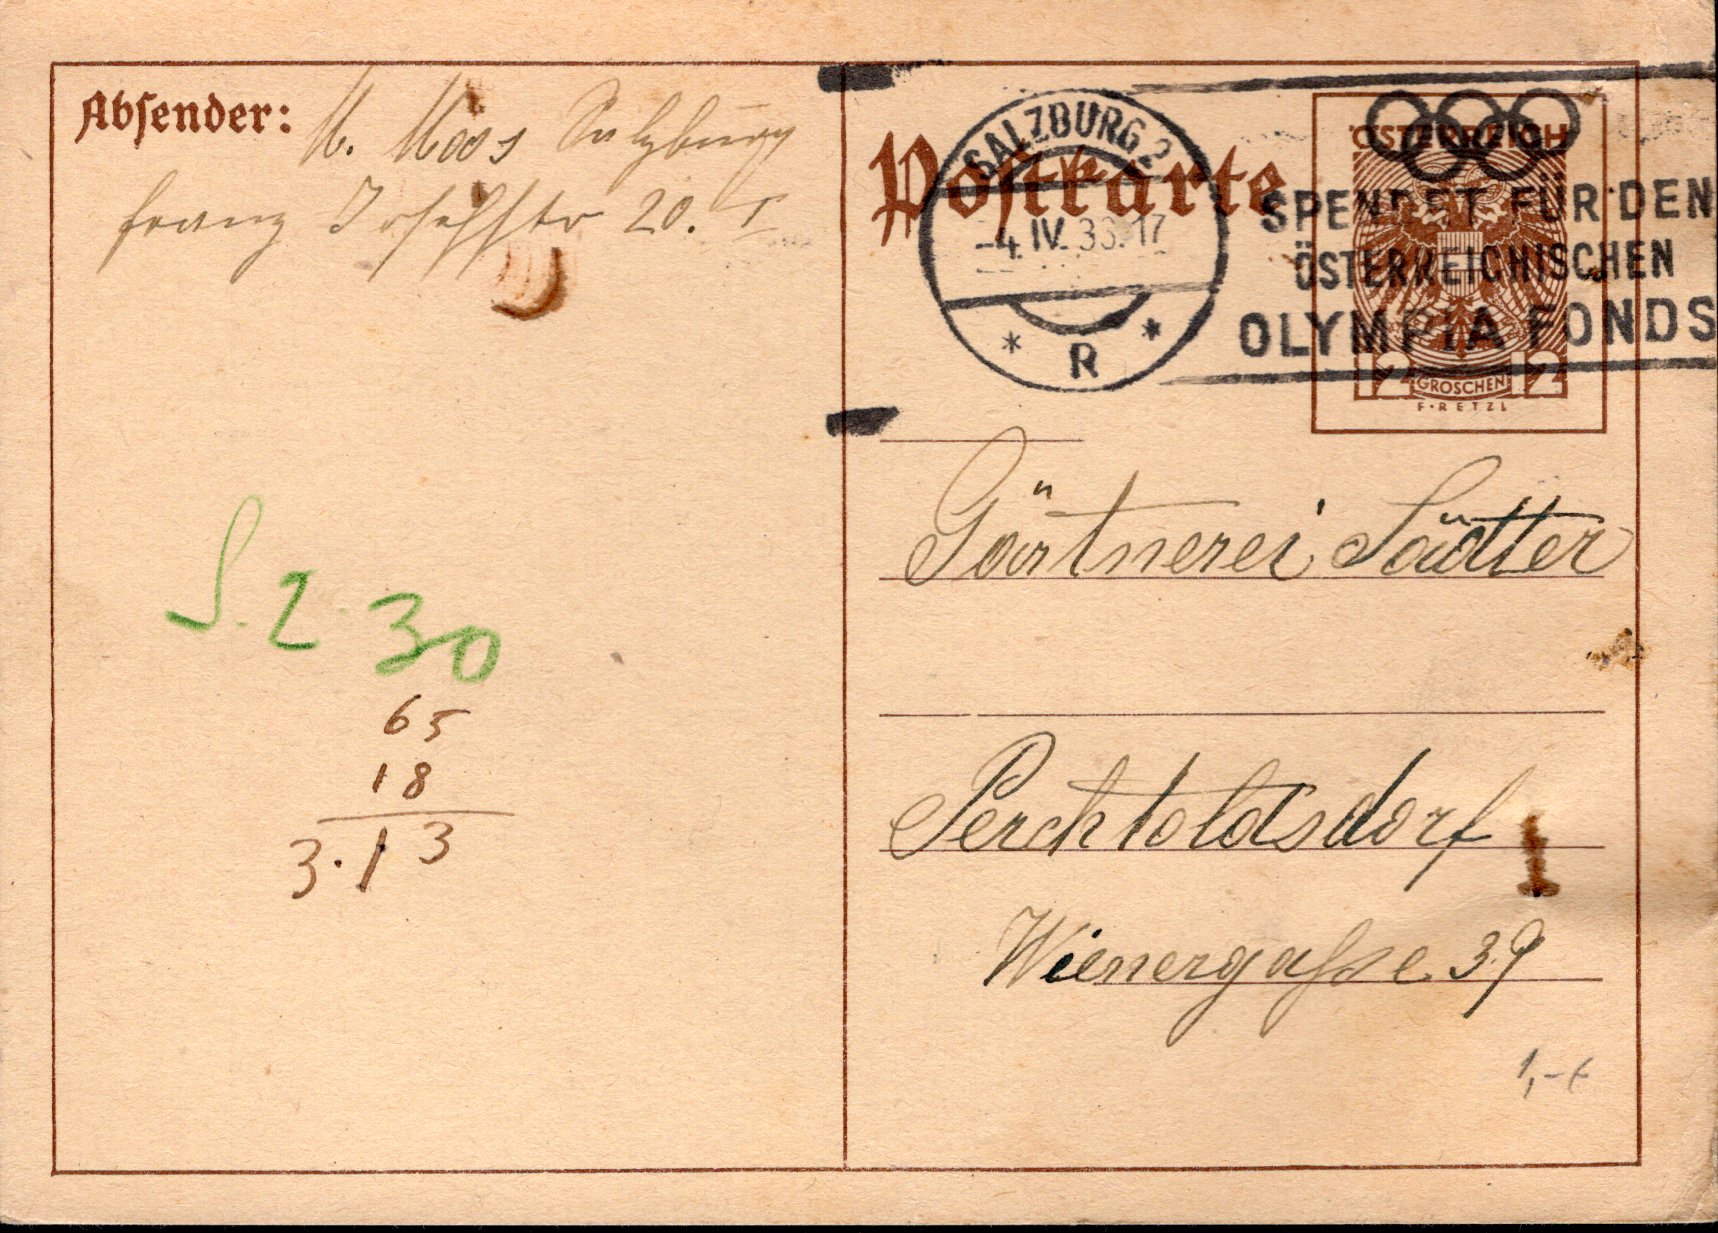 Absender: M. Moos Salzburg
Franz Josefstr 20. I
Postkarte
SALZBURG 2
-4. IV. 36. 17
* R *
ÖSTERREICH
SPENDET FÜR DEN
ÖSTERREICHISCHEN
OLYMPIA FONDS
12 GROSCHEN 12
F·RETZL
Gärtnerei
Perchtoldsdorf
Wienergasse 39
S. 2 30
65
18
3.13
1,- €